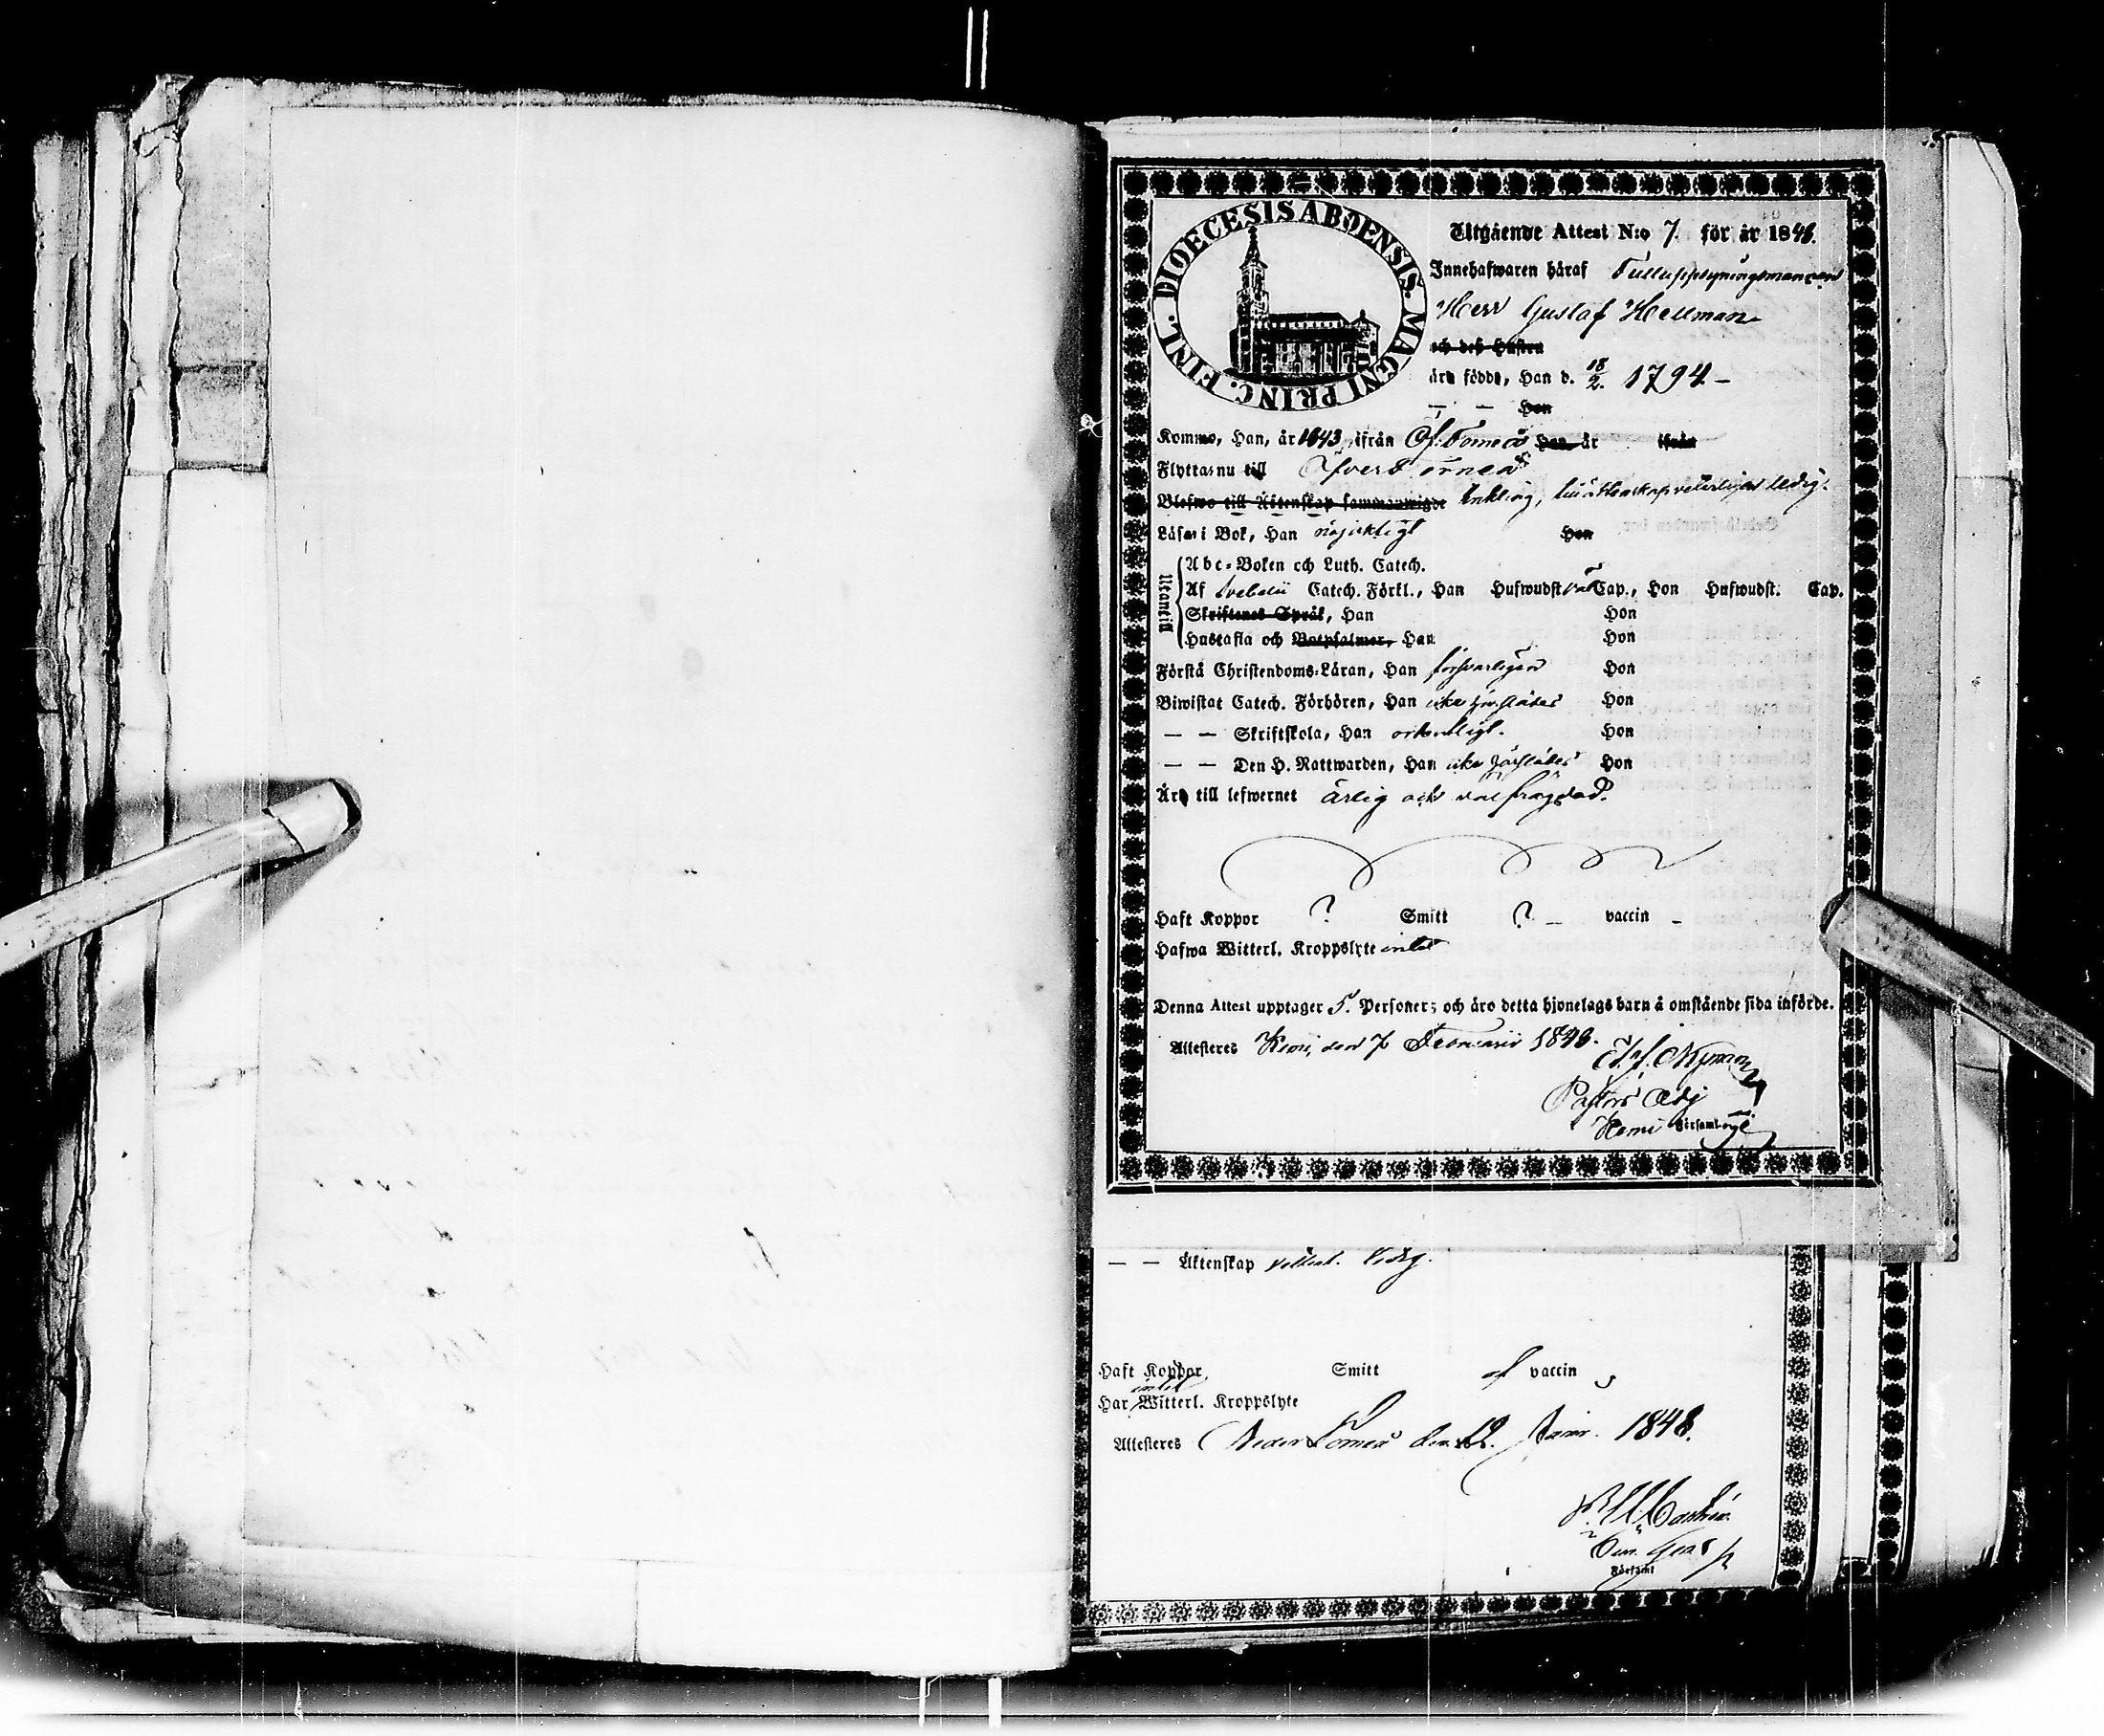 DIOECESIS ABOENSIS. MAGNI PRINC. FINL.
Utgående Attest N:o 7. för år 1848.
Innehafwaren häraf Tulluppsyningsmannen
Herr Gustaf Hellman
och deß Hustru
äro födde, Han d. 18/2. 1794 –
— — Hon
Kommo, Han, år 1843 ifrån Öf. Torneå Hon år ifrån
Flyttar nu till Öfver Torneå
Blefwo till Äktenskap sammanwigde Enkling, till äktenskap veterligen ledig.
Läsa i Bok, Han nöjaktigt Hon
Utantill
Abc-Boken och Luth. Catech.
Af Svebelii Catech. Förkl., Han Hufwudst Cap., Hon Hufwudst. Cap.
Skriftenes Språk, Han Hon
Hustafla och Botpsalmer, Han Hon
Förstå Christendoms-Läran, Han försvarligen Hon
Biwistat Catech. Förhören, Han icke försutit Hon
— — Skriftskola, Han ordentligt. Hon
— — Den H. Nattwarden, Han icke Hon
Äro till lefwernet ärlig och välfrägdad.
Haft Koppor ? Smitt ? – vaccin –
Hafwa Witterl. Kroppslyte intet
Denna Attest upptager 5. Personer; och äro detta hjonelags barn å omstående sida införde.
Attesteres Kemi, den 7 Februarii 1848.
Nyman
Pastors Adj
Kemi Församling
— — Äktenskap vetterl. ledig.
Haft Koppor Smitt af vaccin
intet
Har Witterl. Kroppslyte
Attesteres Neder Torneå den 19. Janr. 1848.
Församl